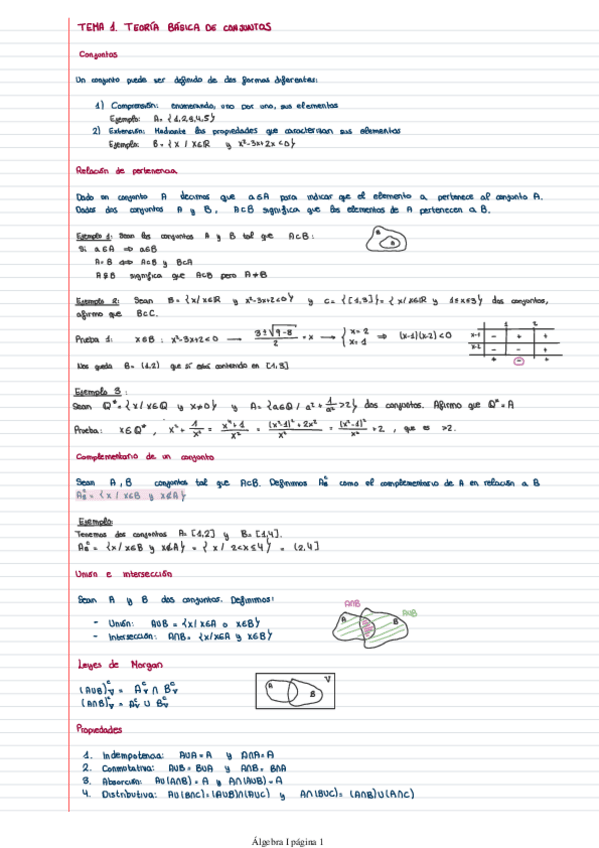 TEMA 1. TEORÍA BÁSICA DE CONJUNTOS
Conjuntos
Un conjunto puede ser definido de dos formas diferentes:
1) Comprensión: enumerando, uno por uno, sus elementos
Ejemplo: A = {1,2,3,4,5}
2) Extensión: Mediante las propiedades que caracterizan sus elementos
Ejemplo: B = {x / x∈ℝ y x²-3x+2x<0}
Relación de pertenencia
Dado un conjunto A decimos que a∈A para indicar que el elemento a pertenece al conjunto A.
Dados dos conjuntos A y B, A⊂B significa que los elementos de A pertenecen a B.
Ejemplo 1: Sean los conjuntos A y B tal que A⊂B:
B A
Si a∈A ⇒ a∈B
A=B ⇔ A⊂B y B⊂A
A⊊B significa que A⊂B pero A≠B
Ejemplo 2: Sean B = {x/ x∈ℝ y x²-3x+2<0} y C = {[1,3]} = {x/ x∈ℝ y 1≤x≤3} dos conjuntos,
afirmo que B⊂C.
Prueba 1: x∈B : x²-3x+2<0 → 3±√9-8 / 2 = x → { x=2 x=1 ⇒ (x-1)(x-2)<0
1 2
x-1 - + +
x-2 - - +
+ - +
Nos queda B = (1,2) que sí está contenido en [1,3]
Ejemplo 3:
Sean ℚ* = {x/ x∈ℚ y x≠0} y A = {a∈ℚ / a² + 1/a² ≥2} dos conjuntos. Afirmo que ℚ* = A
Prueba: x∈ℚ*, x² + 1/x² = x⁴+1 / x² = (x²-1)² + 2x² / x² = (x²-1)² / x² + 2, que es ≥2.
Complementario de un conjunto
Sean A, B conjuntos tal que A⊂B. Definimos A_B^c como el complementario de A en relación a B
A_B^c = {x / x∈B y x∉A}
Ejemplo:
Tenemos dos conjuntos A = [1,2] y B = [1,4].
A_B^c = {x/ x∈B y x∉A} = {x / 2<x≤4} = (2,4]
Unión e intersección
Sean A y B dos conjuntos. Definimos:
A∩B
A∪B
A B
- Unión: A∪B = {x/ x∈A o x∈B}
- Intersección: A∩B = {x/x∈A y x∈B}
Leyes de Morgan
V
A B
(A∪B)_V^c = A_V^c ∩ B_V^c
(A∩B)_V^c = A_V^c ∪ B_V^c
Propiedades
1. Indempotencia: A∪A = A y A∩A = A
2. Conmutativa: A∪B = B∪A y A∩B = B∩A
3. Absorción: A∪(A∩B) = A y A∩(A∪B) = A
4. Distributiva: A∪(B∩C) = (A∪B)∩(A∪C) y A∩(B∪C) = (A∩B)∪(A∩C)
Álgebra I página 1